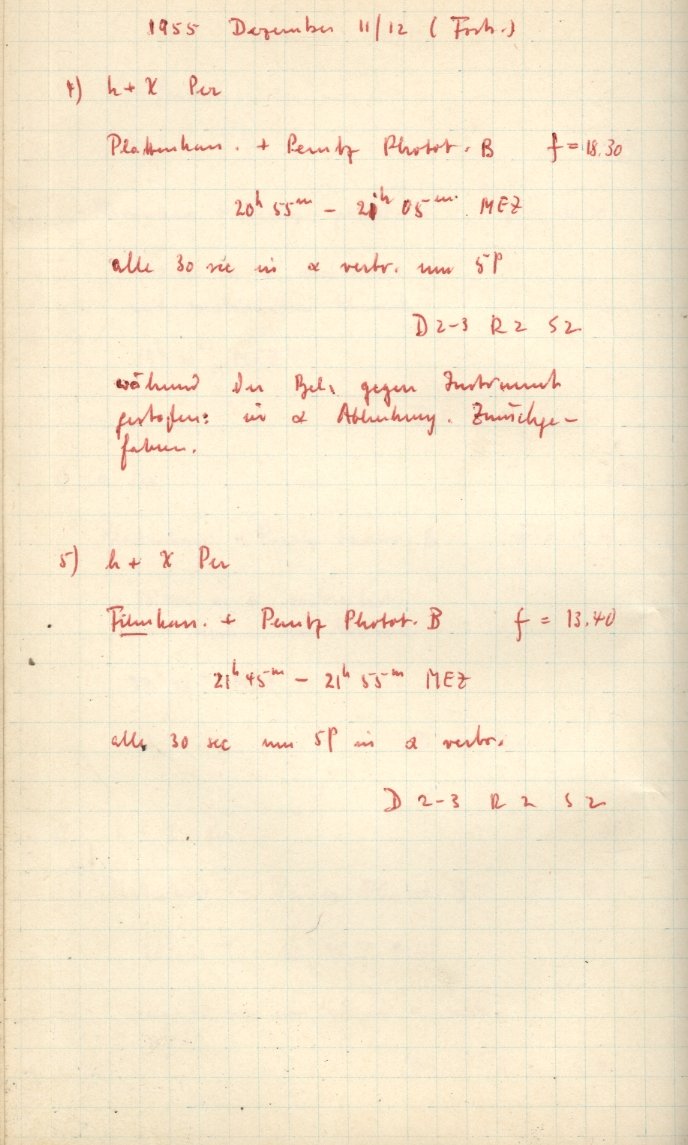 1955 Dezember 11/12 (Forts.)
4) h + χ Per
Plattenkam. + Perutz Photot. B f = 18.30
20h 55m – 21h 05m MEZ
alle 30 sec in α verbr. um 5P
D 2-3 R 2 S 2
während der Bel. gegen Instrument
gestoßen: in α Ablenkung. Zurückge-
fahren.
5) h + χ Per
Filmkam. + Perutz Photot. B f = 13.40
21h 45m – 21h 55m MEZ
alle 30 sec um 5P in α verbr.
D 2-3 R 2 S 2